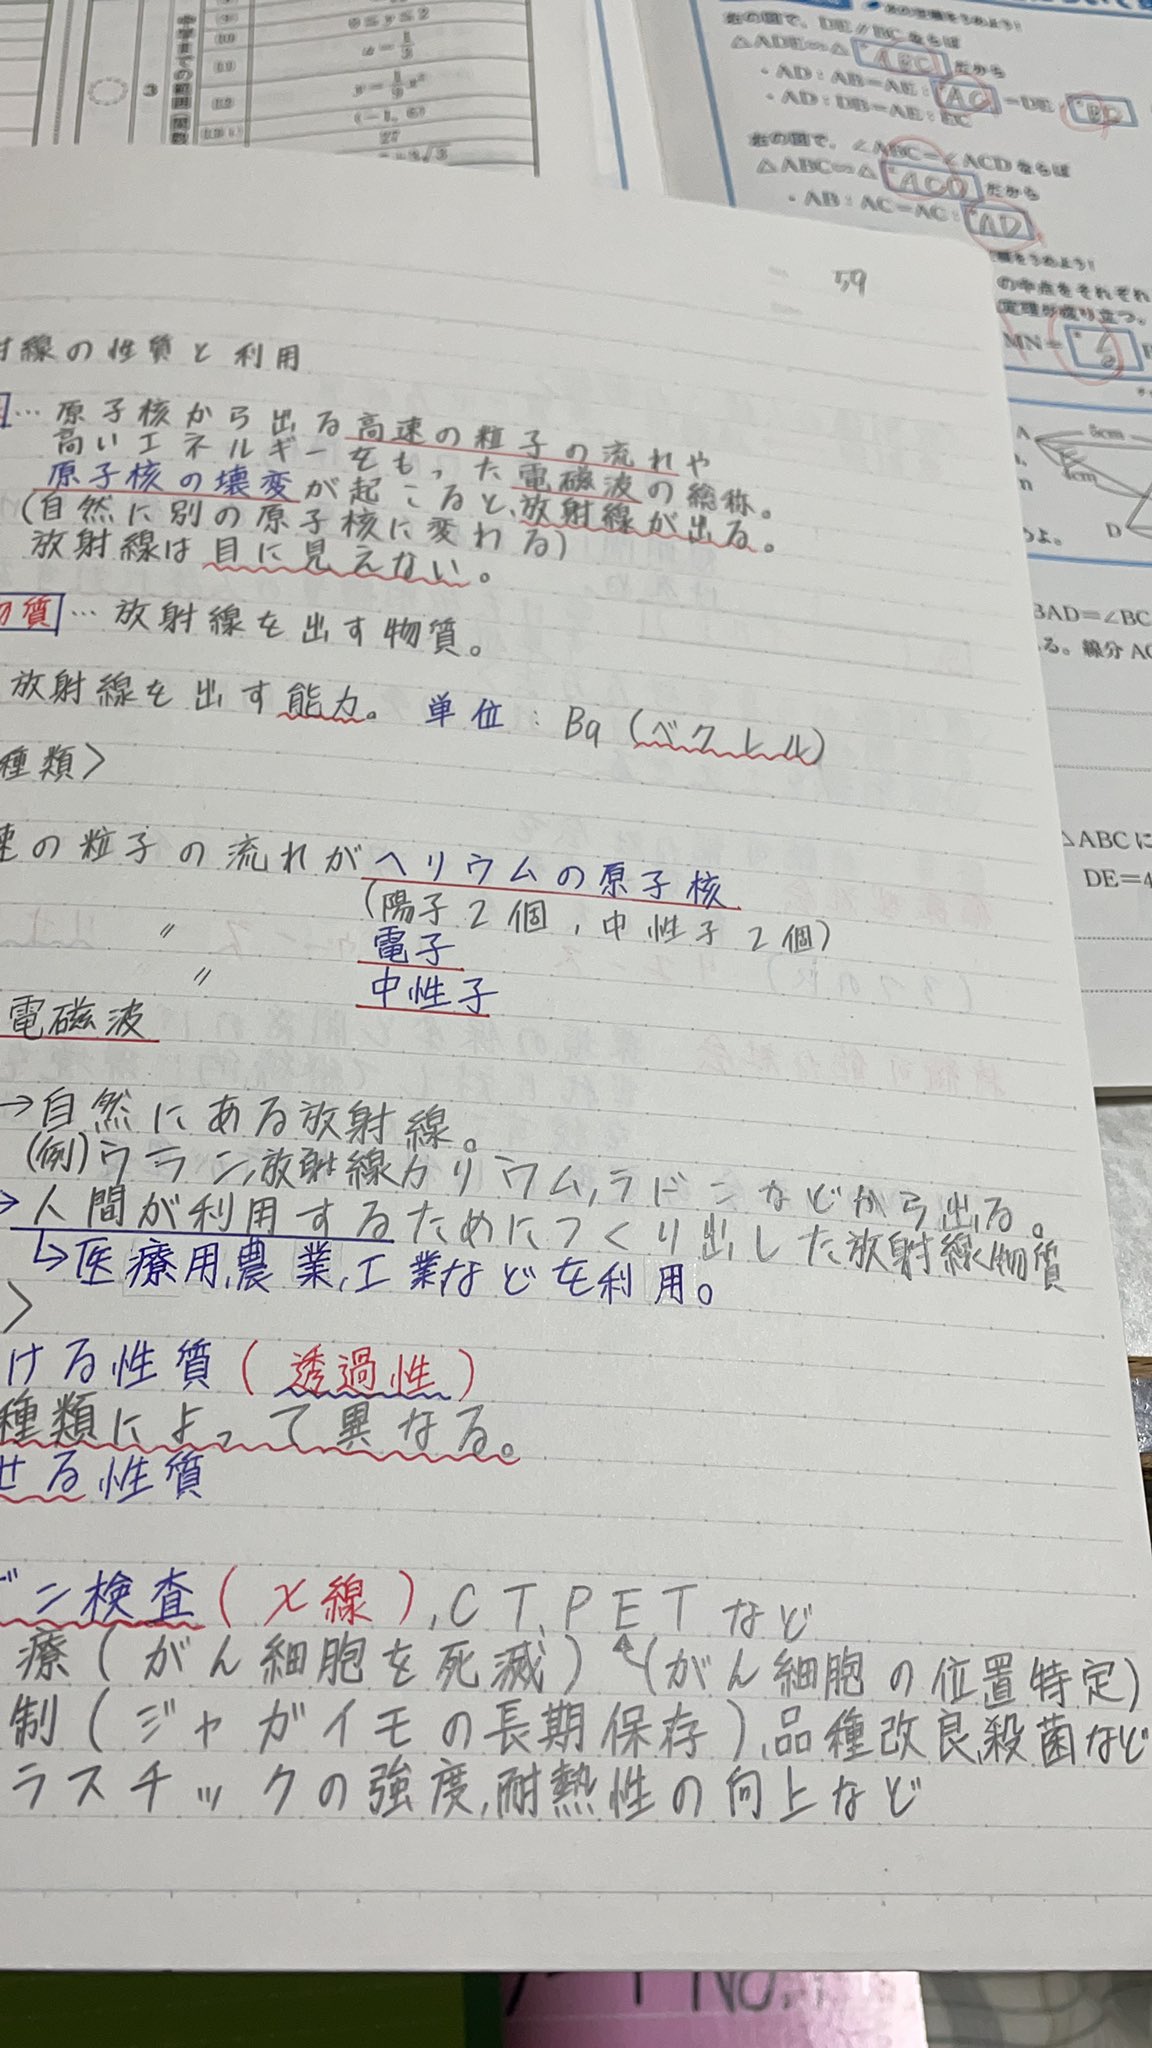 0≦y≦2
(10)
(11)
(12)
3
(-1, 6)
27
右の図で、DE//BCならば
△ADE∽△ABCだから
・AD:AB=AE:AC=DE:BC
・AD:DB=AE:EC
右の図で、∠ABC=∠ACDならば
△ABC∽△ACDだから
・AB:AC=AC:AD
をうめよう!
の中点をそれぞれ
が成り立つ。
MN=
A
5cm
4cm
D
よ。
BAD=∠BC
る。線分AC
△ABCに
DE=4
59
射線の性質と利用
…原子核から出る高速の粒子の流れや
高いエネルギーをもった電磁波の総称。
原子核の壊変が起こると、放射線が出る。
(自然に別の原子核に変わる)
放射線は目に見えない。
物質…放射線を出す物質。
放射線を出す能力。単位:Bq(ベクレル)
種類>
速の粒子の流れがヘリウムの原子核
(陽子2個,中性子2個)
〃 電子
〃 中性子
電磁波
→自然にある放射線。
(例)ウラン,放射線カリウム,ラドンなどから出る。
→人間が利用するためにつくり出した放射線物質
↳医療用,農業,工業などを利用。
>
ける性質(透過性)
種類によって異なる。
せる性質
ン検査(X線),CT,PETなど
療(がん細胞を死滅) (がん細胞の位置特定)
制(ジャガイモの長期保存),品種改良,殺菌など
ラスチックの強度,耐熱性の向上など
NO.